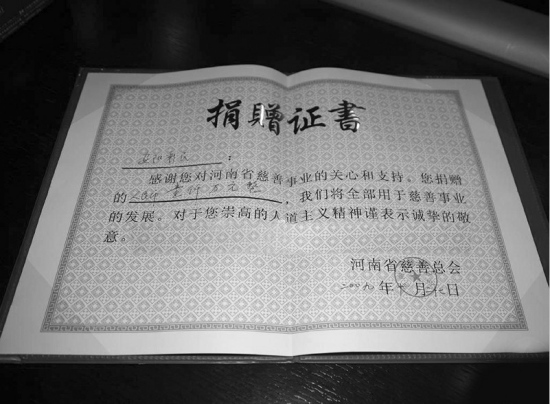 捐贈证書
感谢您对河南省慈善事业的关心和支持。您捐赠
的人民币壹仟万元整，我们将全部用于慈善事业
的发展。对于您崇高的人道主义精神谨表示诚挚的敬
意。
河南省慈善总会
二〇〇九年 月 日